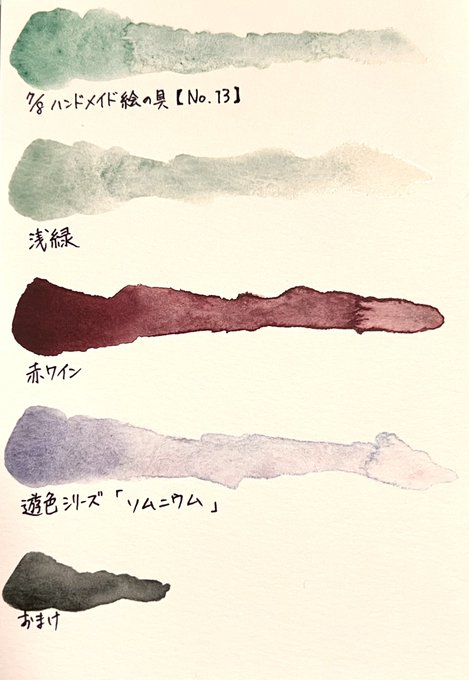 7/8 ハンドメイド絵の具【No.13】
浅緑
赤ワイン
遊色シリーズ「ソムニウム」
おまけ